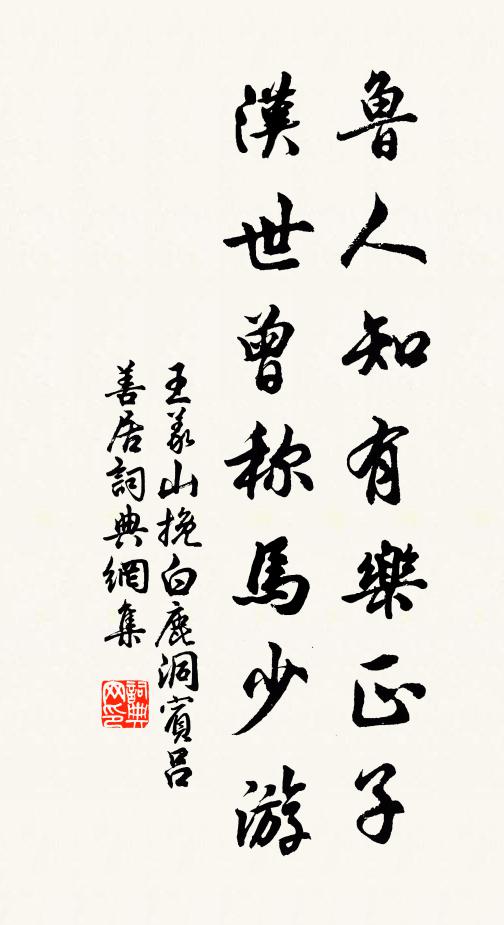 魯人知有樂正子
漢世曾称馬少游
王義山挽白鹿洞賓呂
善居詞典網集
詞典
网